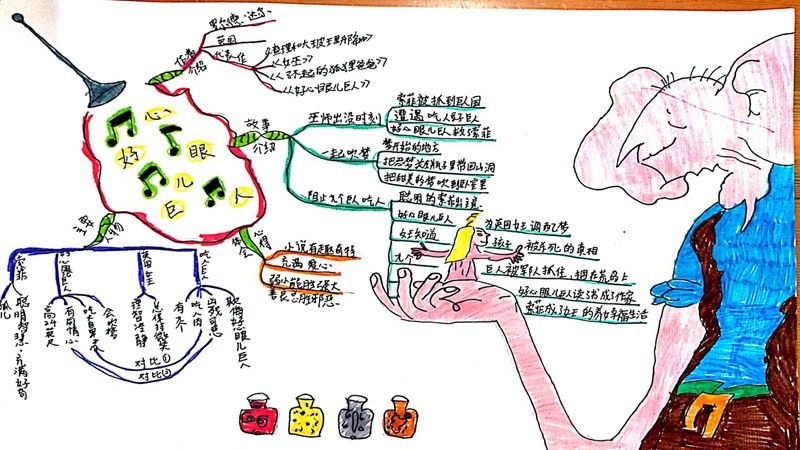 好心眼儿巨人
作者介绍
罗尔德·达尔
英国
代表作
《查理和大玻璃升降机》
《女巫》
《了不起的狐狸爸爸》
《好心眼儿巨人》
故事介绍
巫师出没时刻
索菲被抓到巨人国
遭遇吃人巨人
好心眼儿巨人救索菲
一起吹梦
梦开始的地方
把恶梦装在瓶子里带回山洞
把甜美的梦吹到卧室里
阻止九个巨人吃人
聪明的索菲出主意
好心眼儿巨人
为英国女王调配梦
女王知道
孩子
被杀死的真相
九个
巨人被军队抓住,捆在
好心眼儿巨人读书成了作家
索菲成了女王的养女幸福生活
心得体会
小说有趣奇特
充满爱心
弱小能胜强大
善良总胜邪恶
主要人物
索菲
孤儿
聪明智慧、充满好奇
好心眼巨人
有同情心
英国女王
理智冷静
总保持微笑
吃人巨人
吃人肉
凶残可恶
欺侮好心眼儿巨人
对比①
对比②